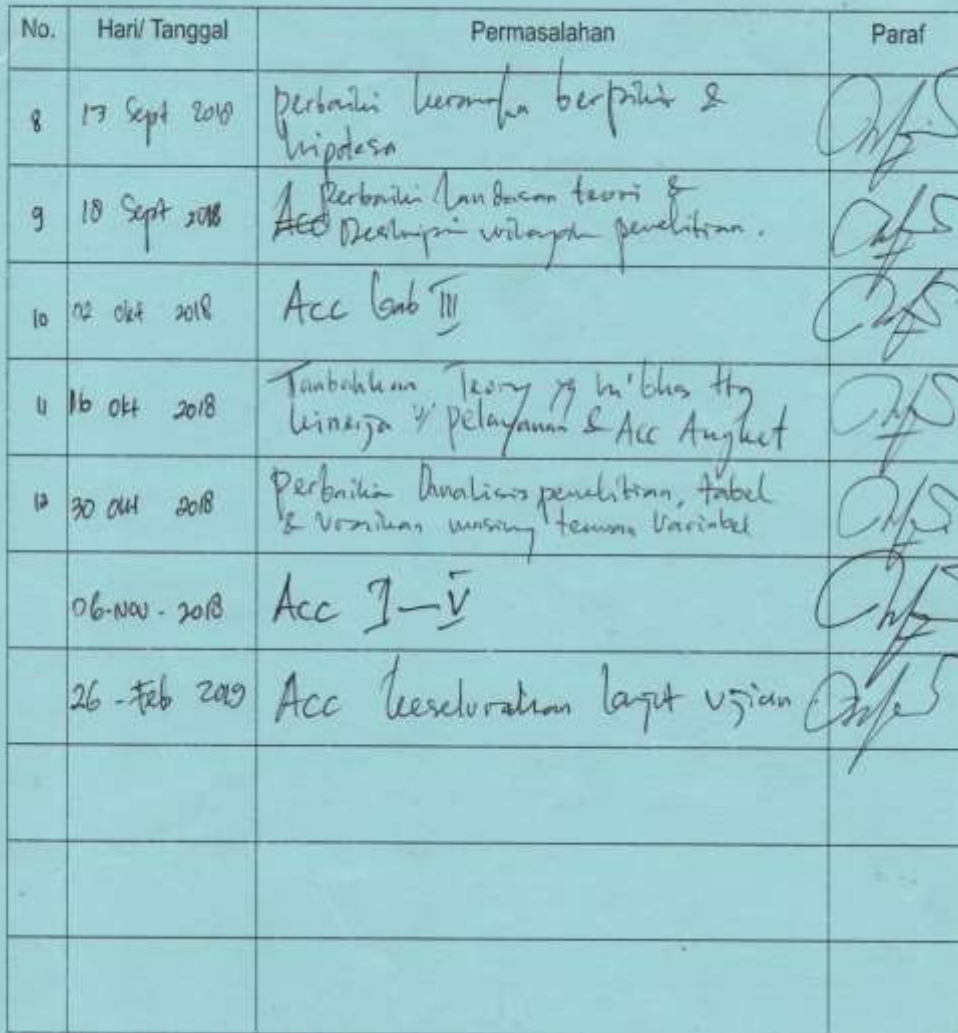 No. Hari/ Tanggal Permasalahan Paraf
8 17 Sept 2018 perbaiki kerangka berpikir &
hipotesa
9 18 Sept 2018 Perbaiki landasan teori &
Acc Deskripsi wilayah penelitian.
10 02 okt 2018 Acc bab III
11 16 okt 2018 Tambahkan Teory yg di bhas ttg
kinerja pelayanan & Acc Angket
12 30 okt 2018 Perbaikan Analisis penelitian, tabel
& uraikan masing temuan Variabel
06-Nov-2018 Acc I-V
26-Feb 2019 Acc keseluruhan lanjut ujian